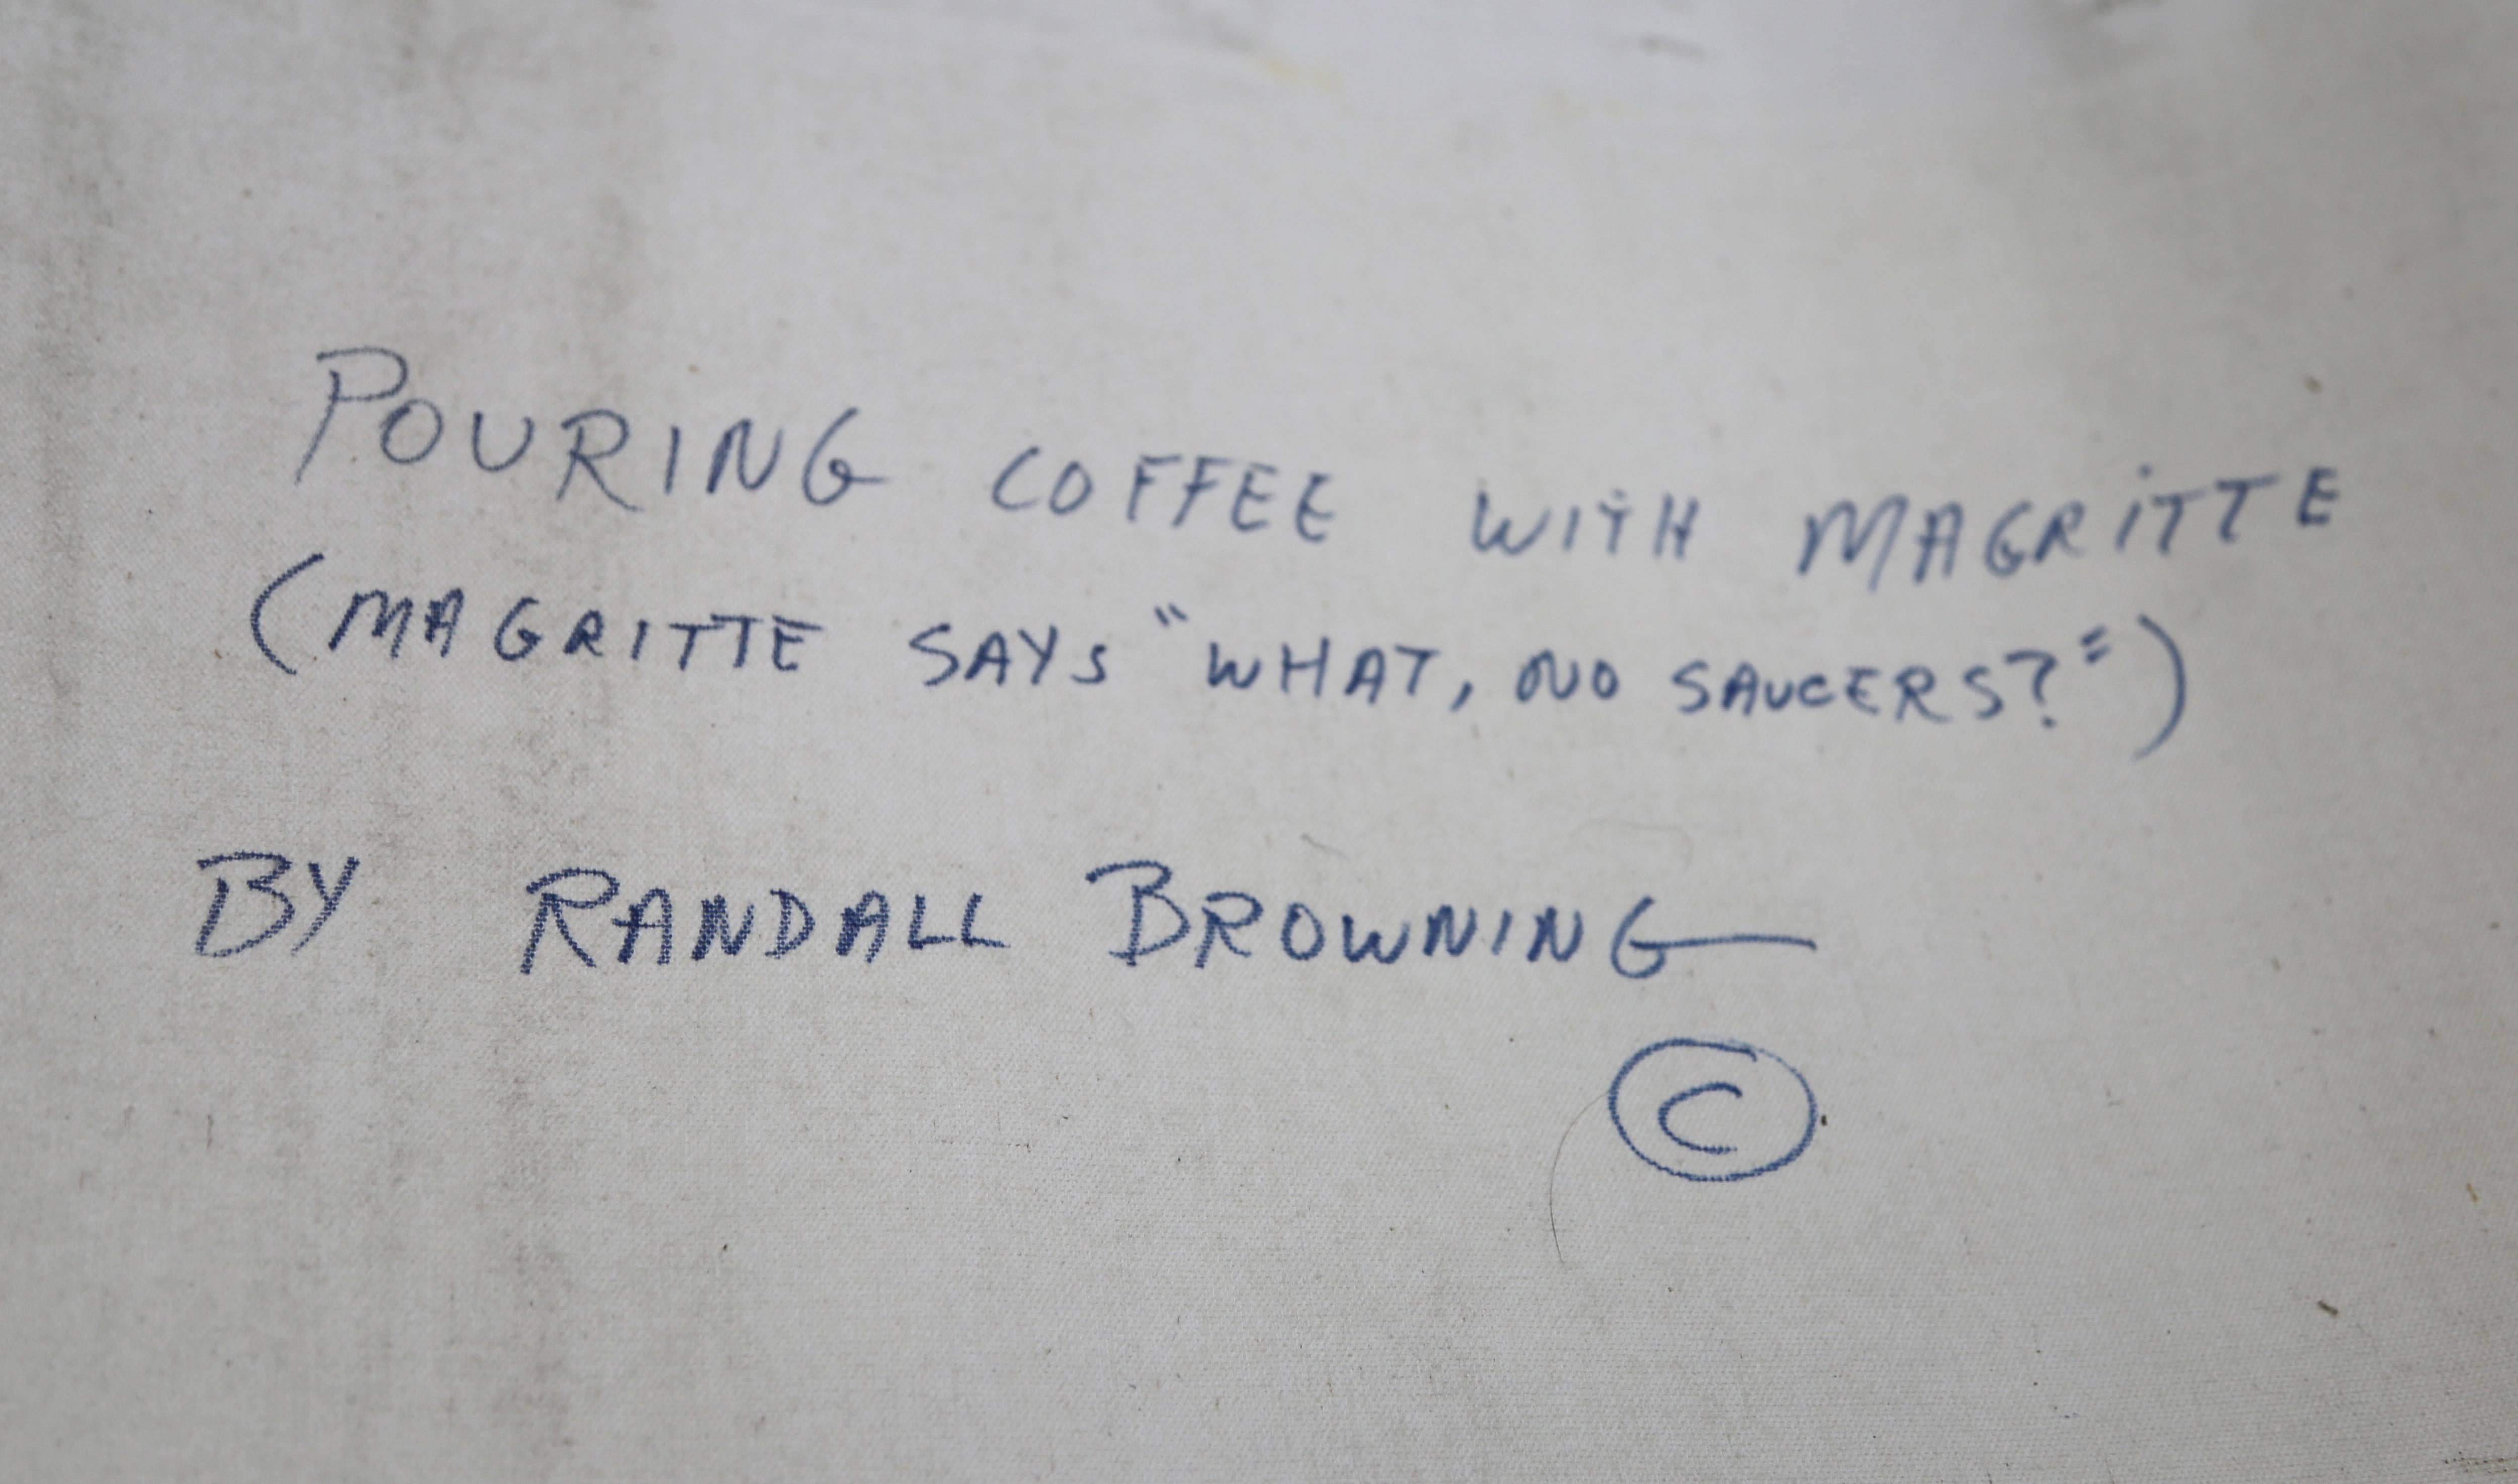 POURING COFFEE WITH MAGRITTE
(MAGRITTE SAYS "WHAT, NO SAUCERS?")
BY RANDALL BROWNING
©